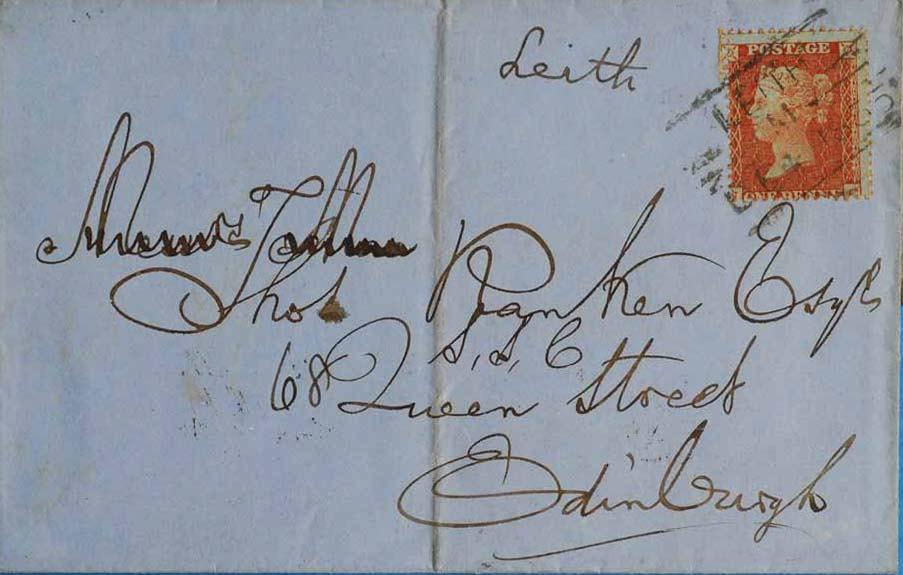 Leith
POSTAGE
LEITH
ONE PENNY
Messrs
Thos Ranken Esqr
S.S.C
68 Queen Street
Edinburgh